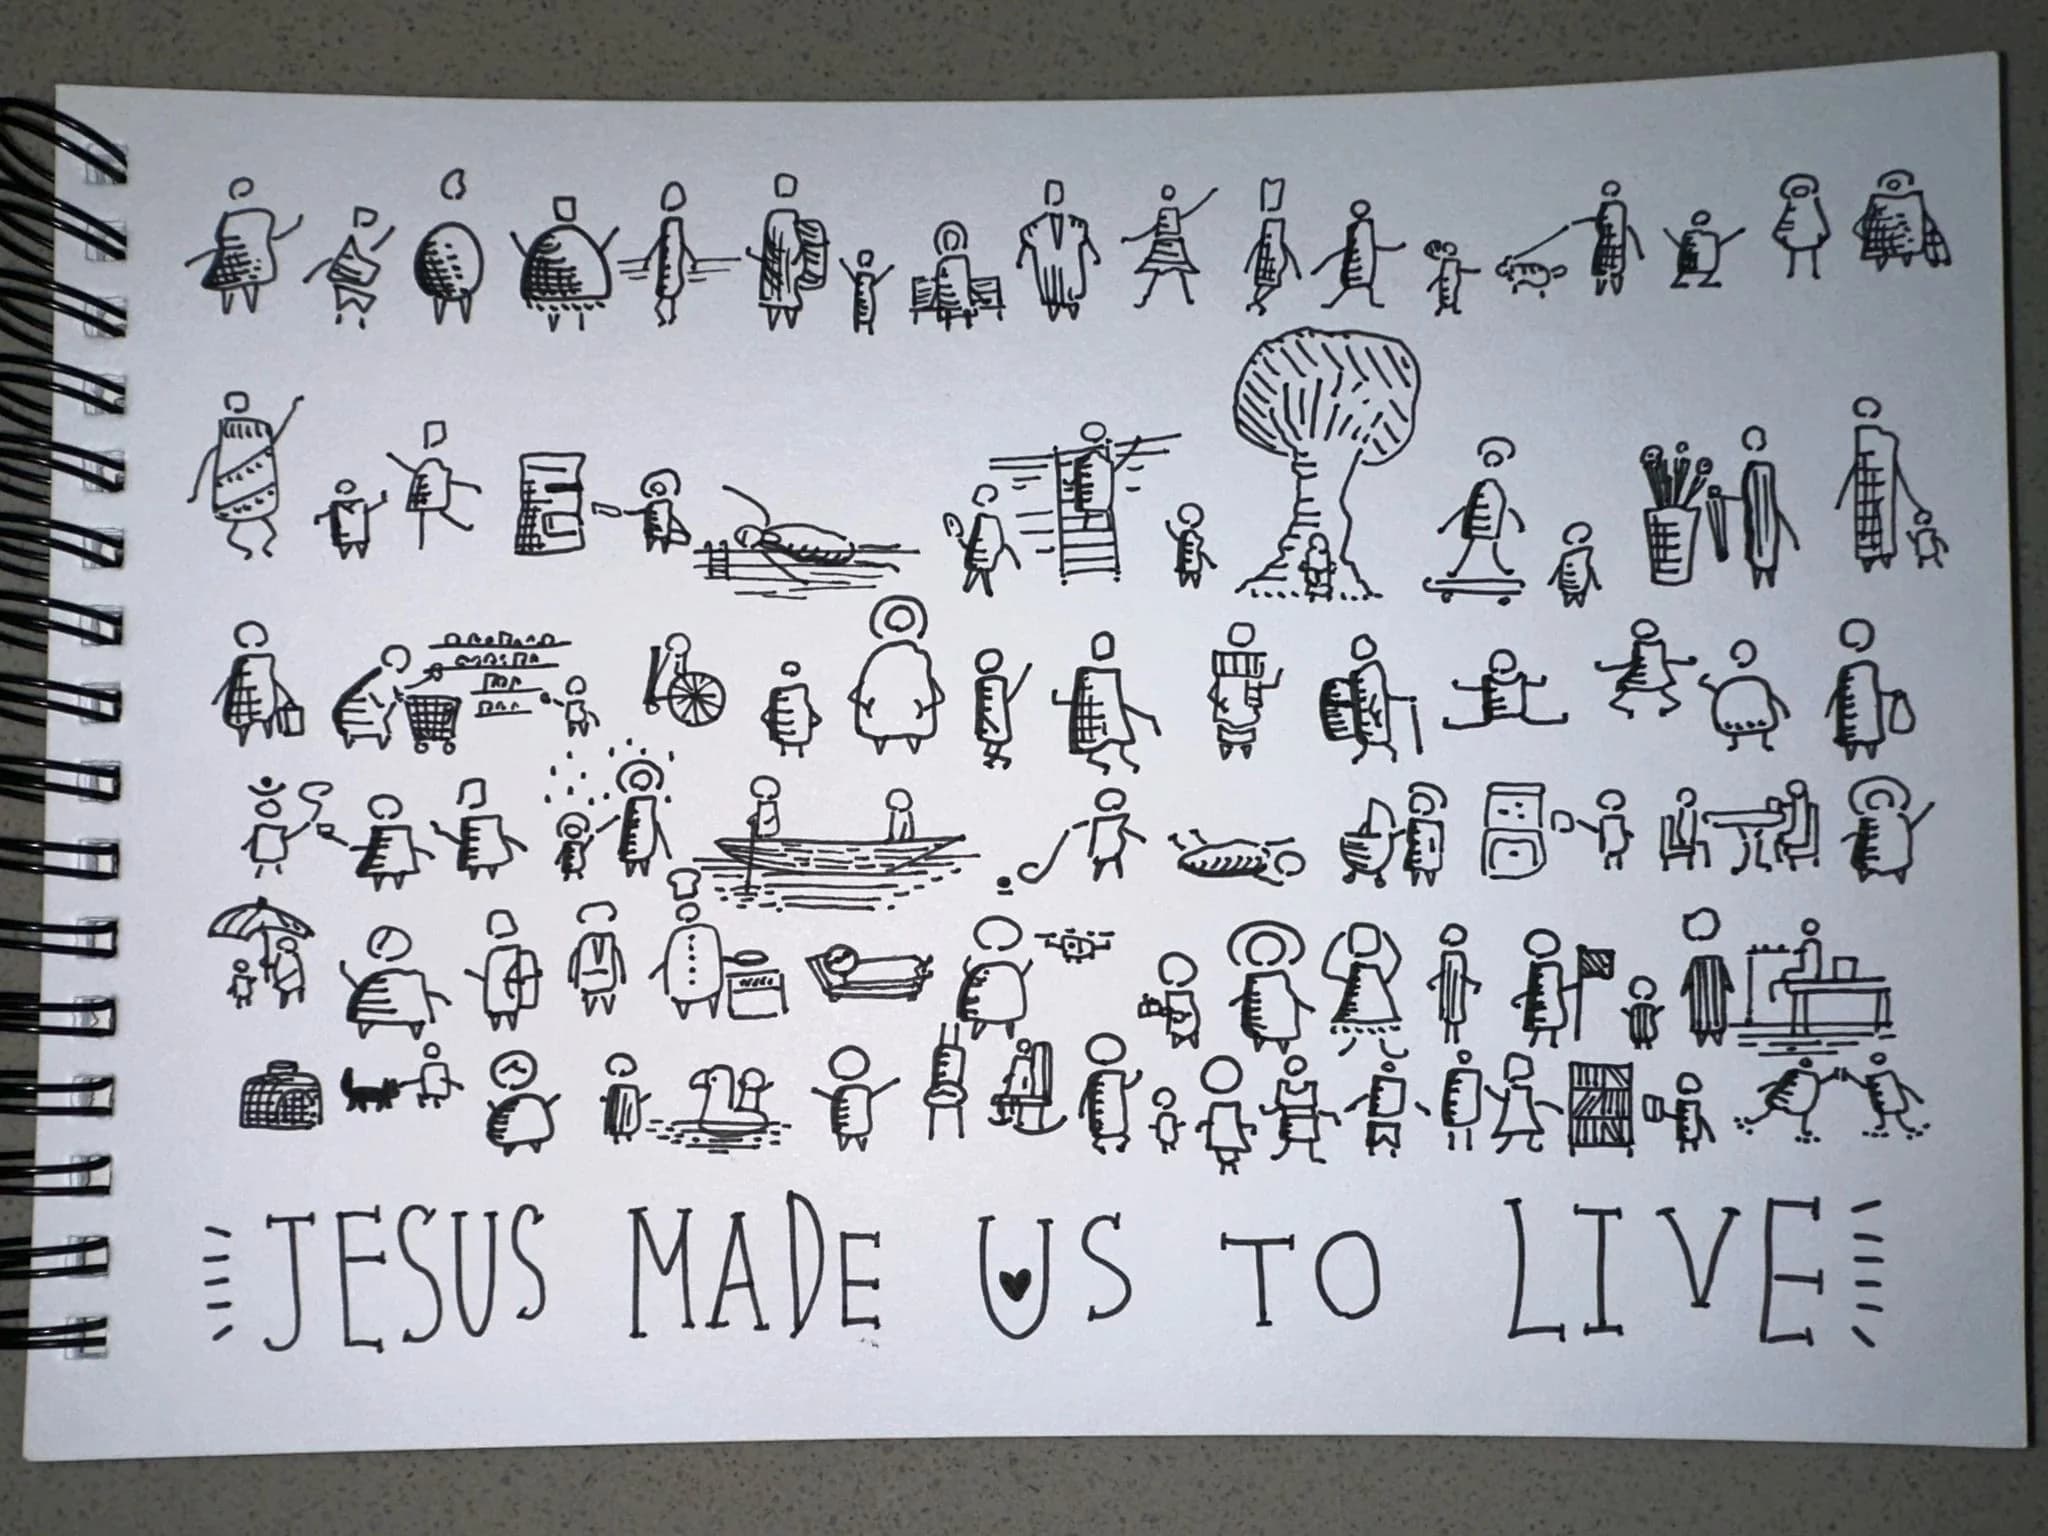 JESUS MADE US TO LIVE